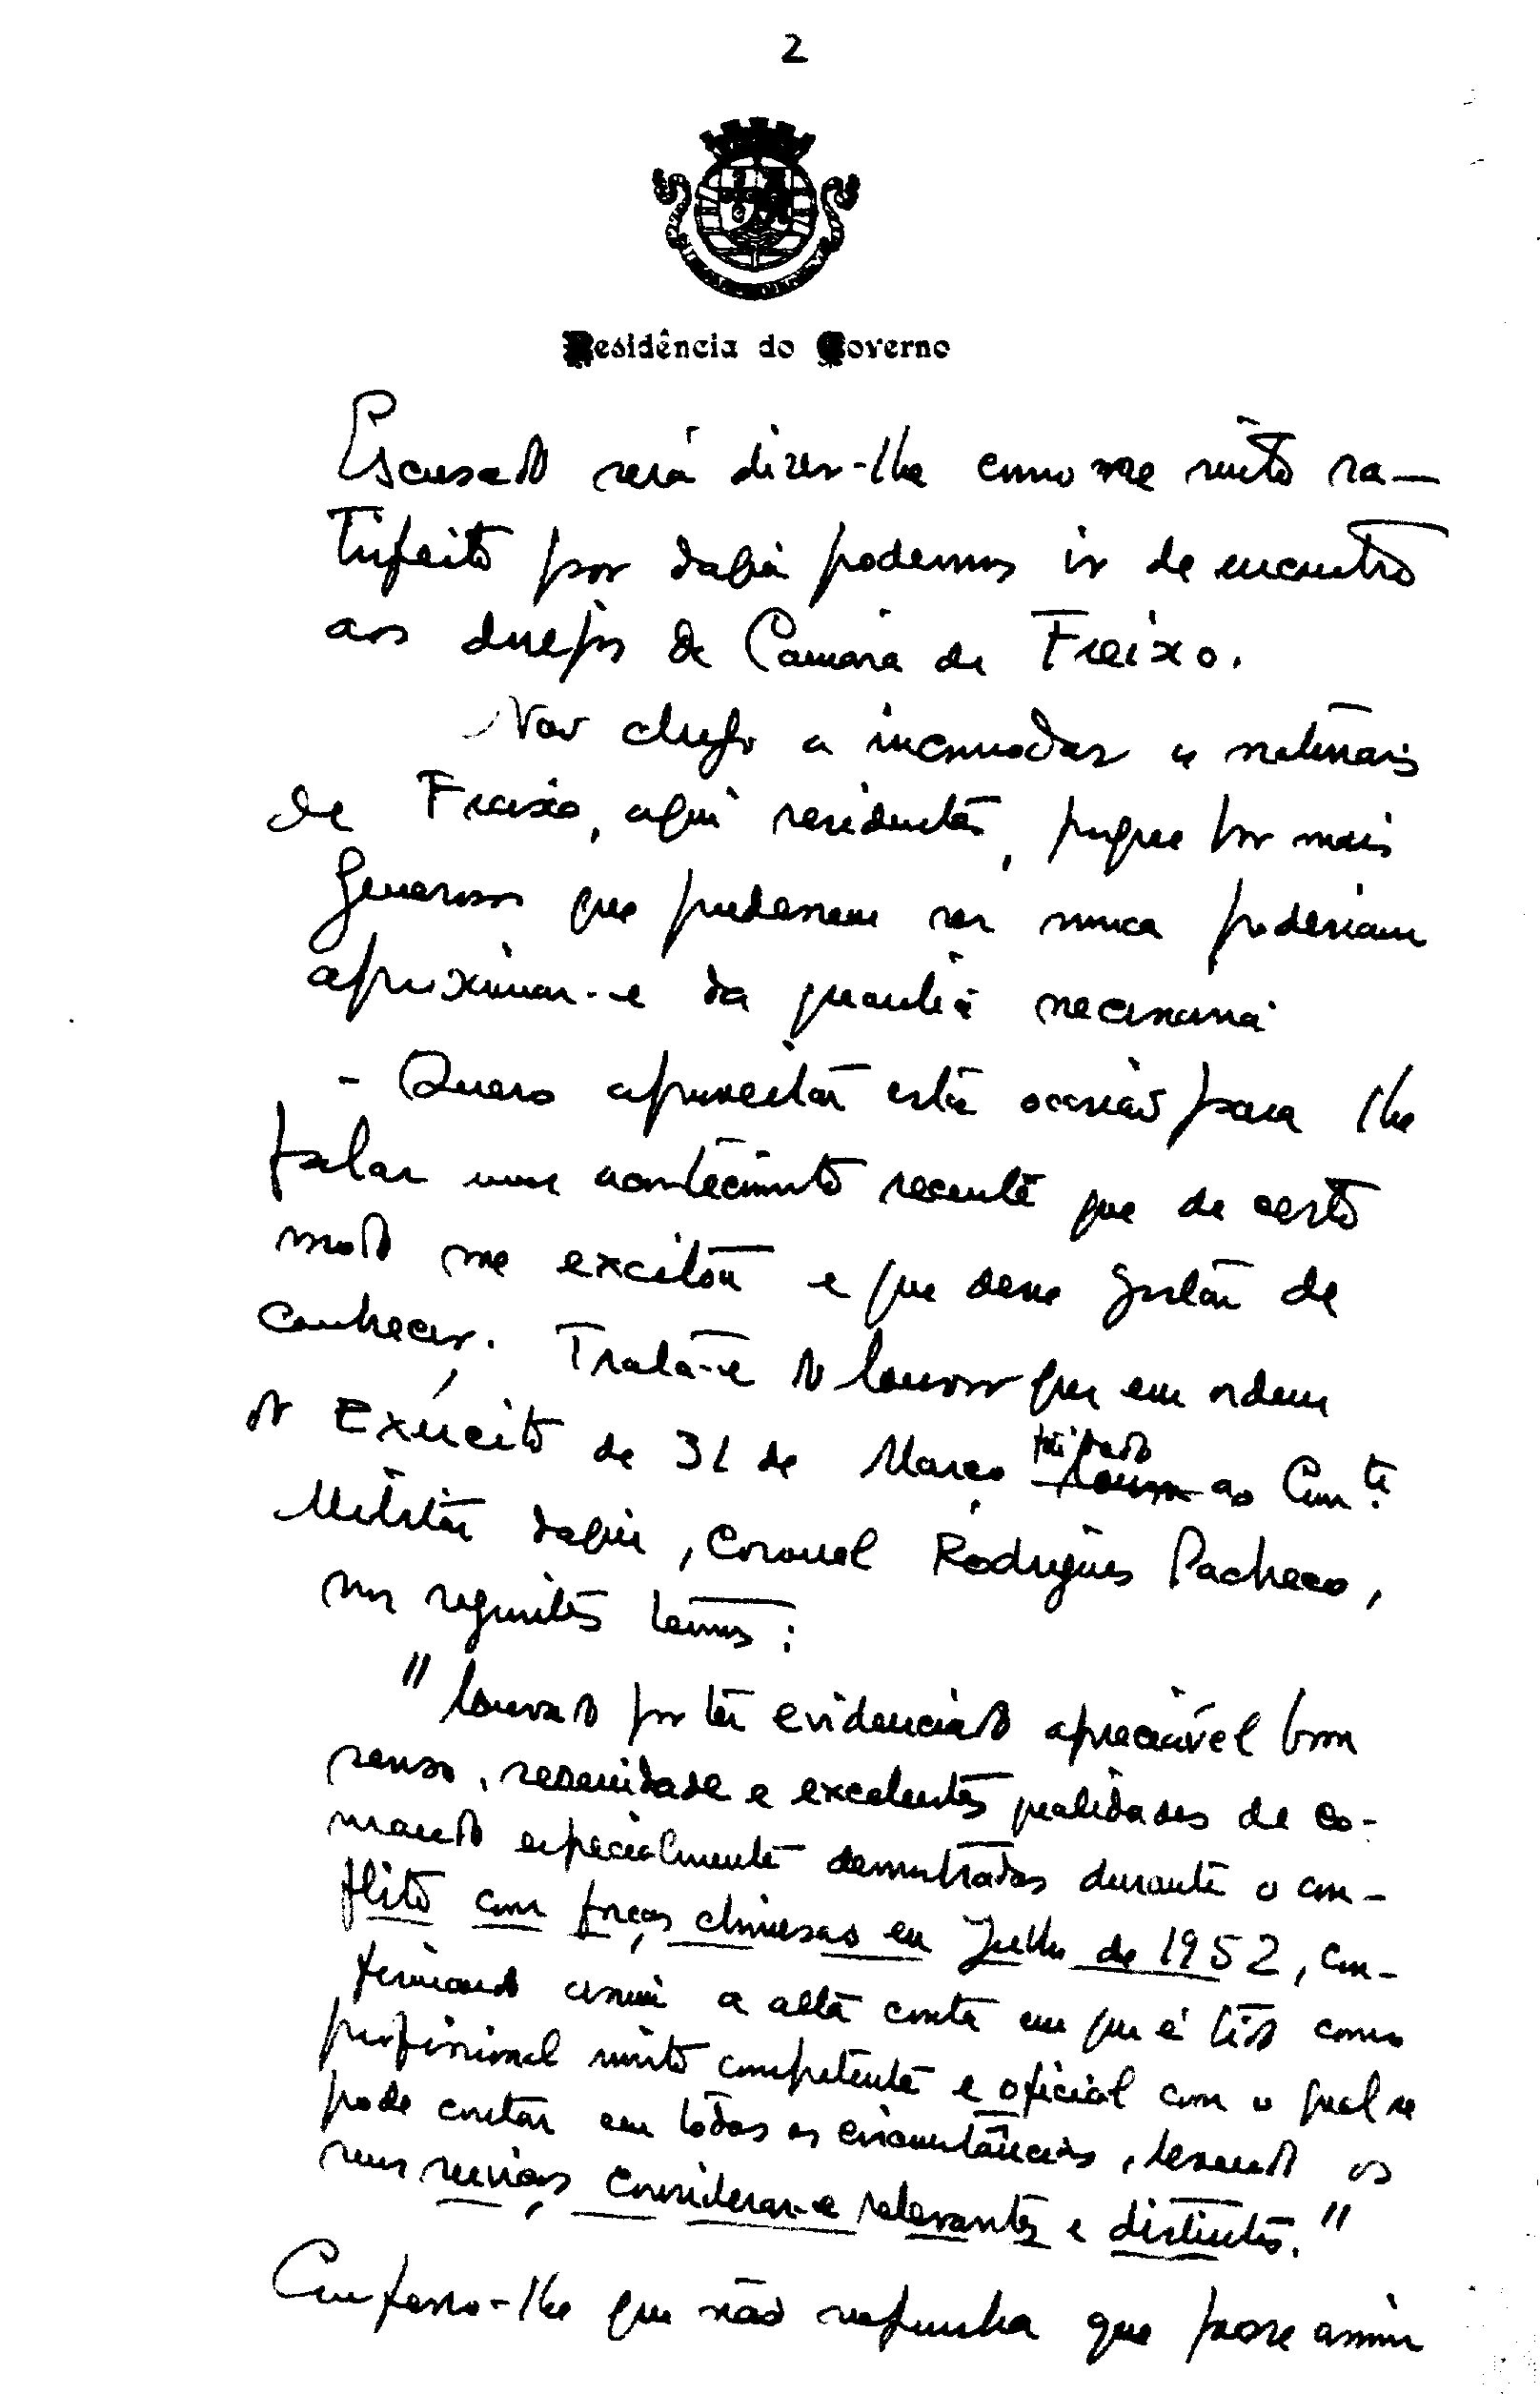 2
Residência do Governo
Escusado será dizer-lhe como me sinto sa-
tisfeito por daqui podermos ir de encontro
aos desejos da Câmara de Freixo.
Nao chego a incomodar os naturais
de Freixo, aqui residentes, porque por mais
generosos que pudessem ser nunca poderiam
aproximar-se da quantia necessária
- Quero aproveitar esta ocasião para lhe
falar num acontecimento recente que de certo
modo me excitou e que deve gostar de
conhecer. Trata-se do louvor que em ordem
do Exército de 31 de Março foi dado ao Com.te
Militar daqui, Coronel Rodrigues Pacheco,
nos seguintes termos:
"louvado por ter evidenciado apreciável bom
senso, serenidade e excelentes qualidades de co-
mando especialmente demonstradas durante o con-
flito com forças chinesas em Julho de 1952, con-
firmando assim a alta conta em que é tido como
profissional muito competente e oficial com o qual se
pode contar em todas as circunstâncias, devendo os
seus serviços considerar-se relevantes e distintos."
Confesso-lhe que não supunha que fosse assim